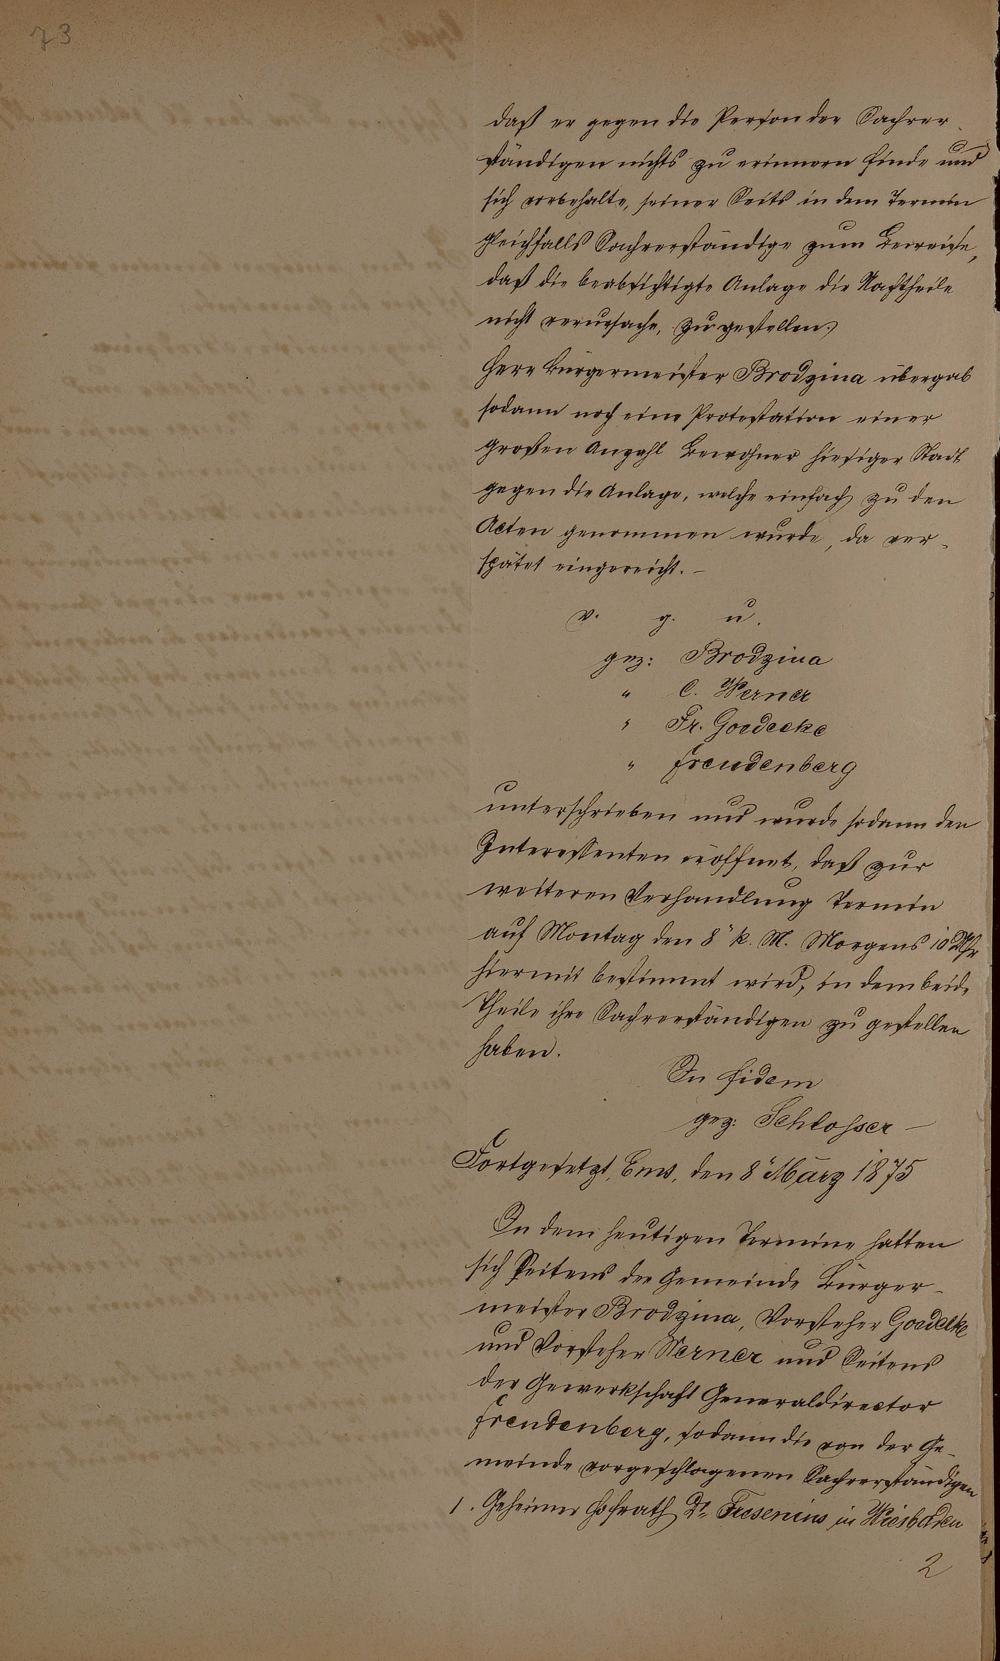 73
daß er gegen die Person der Sachver-
ständigen nichts zu erinnern finde und
sich vorbehalte, seiner Seits in dem Termin
gleichfalls Sachverständige zum Beweise,
daß die beabsichtigte Anlage die Nachtheile
nicht verursache, zu gestellen.
Herr Bürgermeister Brodzina übergab
sodann noch eine Protestation einer
großen Anzahl Bewohner hiesiger Stadt
gegen die Anlage, welche einfach zu den
Acten genommen wurde, da ver-
spätet eingereicht. –
v. g. u.
gez: Brodzina
" C. Werner
" Fr. Goedecke
" Freudenberg
unterschrieben und wurde sodann den
Interessenten eröffnet, daß zur
weiteren Verhandlung Termin
auf Montag den 8" k. M. Morgens 10 Uhr
hiermit bestimmt wird, in dem beide
Theile ihre Sachverständigen zu gestellen
haben.
In fidem
gez: Schlosser –
Fortgesetzt, Ems, den 8" März 1875
In dem heutigen Termine hatten
sich Seitens der Gemeinde Bürger-
meister Brodzina, Vorsteher Goedecke
und Vorsteher Werner und Seitens
der Gewerkschaft Generaldirector
Freudenberg, sodann die von der Ge-
meinde vorgeschlagenen Sachverständigen
1. Geheimer Hofrath Dr. Fresenius in Wiesbaden
2